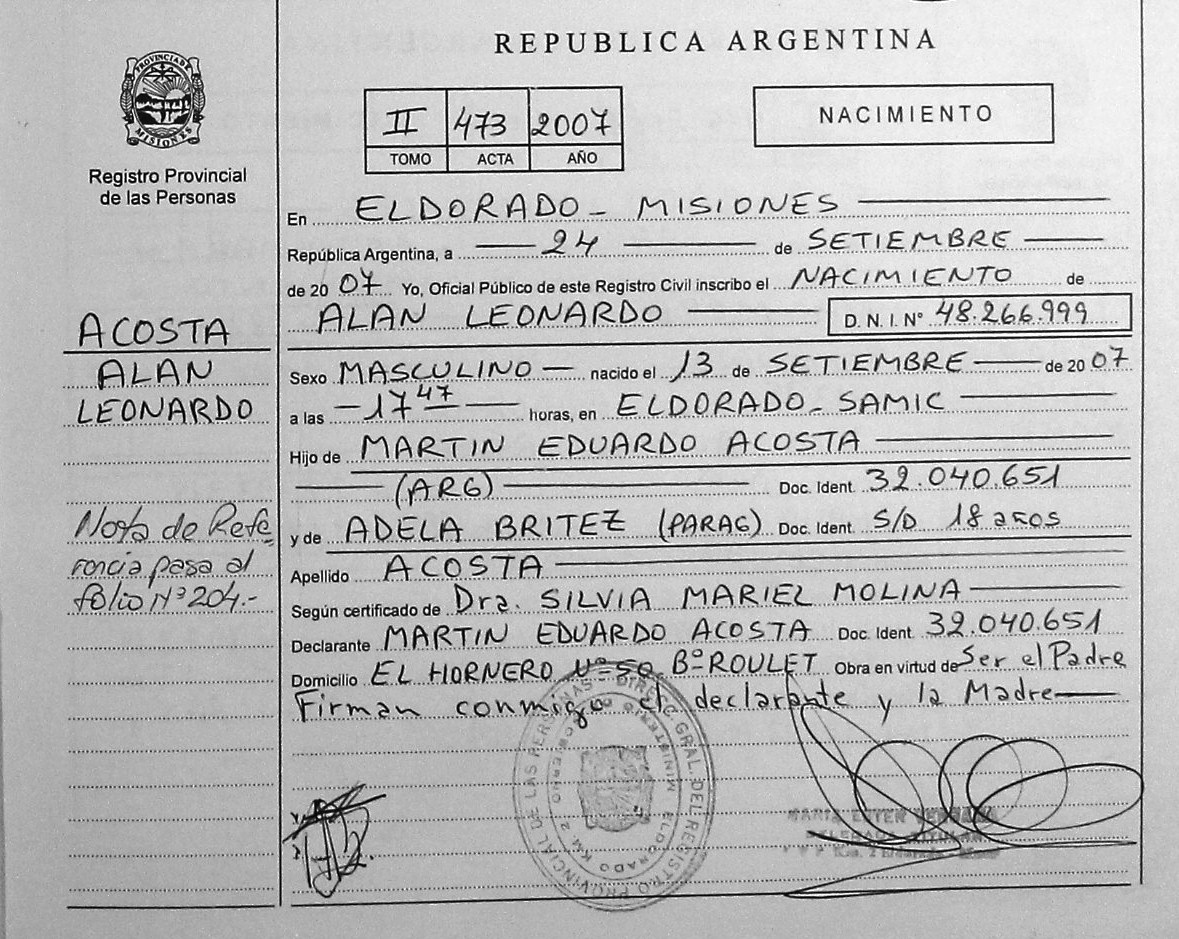 REPUBLICA ARGENTINA
PROVINCIA DE MISIONES
Registro Provincial
de las Personas
II 473 2007
TOMO ACTA AÑO
NACIMIENTO
En ELDORADO - MISIONES
República Argentina, a 24 de SETIEMBRE
de 20 07 Yo, Oficial Público de este Registro Civil inscribo el NACIMIENTO de
ALAN LEONARDO D. N. I. Nº 48.266.999
ACOSTA
ALAN
LEONARDO
Sexo MASCULINO nacido el 13 de SETIEMBRE de 20 07
a las 17 47 horas, en ELDORADO - SAMIC
Hijo de MARTIN EDUARDO ACOSTA
(ARG) Doc. Ident. 32.040.651
y de ADELA BRITEZ (PARAG) Doc. Ident. S/D 18 años
Apellido ACOSTA
Según certificado de Dra. SILVIA MARIEL MOLINA
Declarante MARTIN EDUARDO ACOSTA Doc. Ident. 32.040.651
Domicilio EL HORNERO Nº 50 Bº ROULET Obra en virtud de Ser el Padre
Firman conmigo el declarante y la Madre
Nota de Refe
rencia pasa al
folio Nº 204.-
DIREC. GRAL. DEL REGISTRO PROVINCIAL DE LAS PERSONAS
MINISTERIO DE GOBIERNO
ELDORADO KM. 2
MARIA ESTER
DELEGADA TITULAR